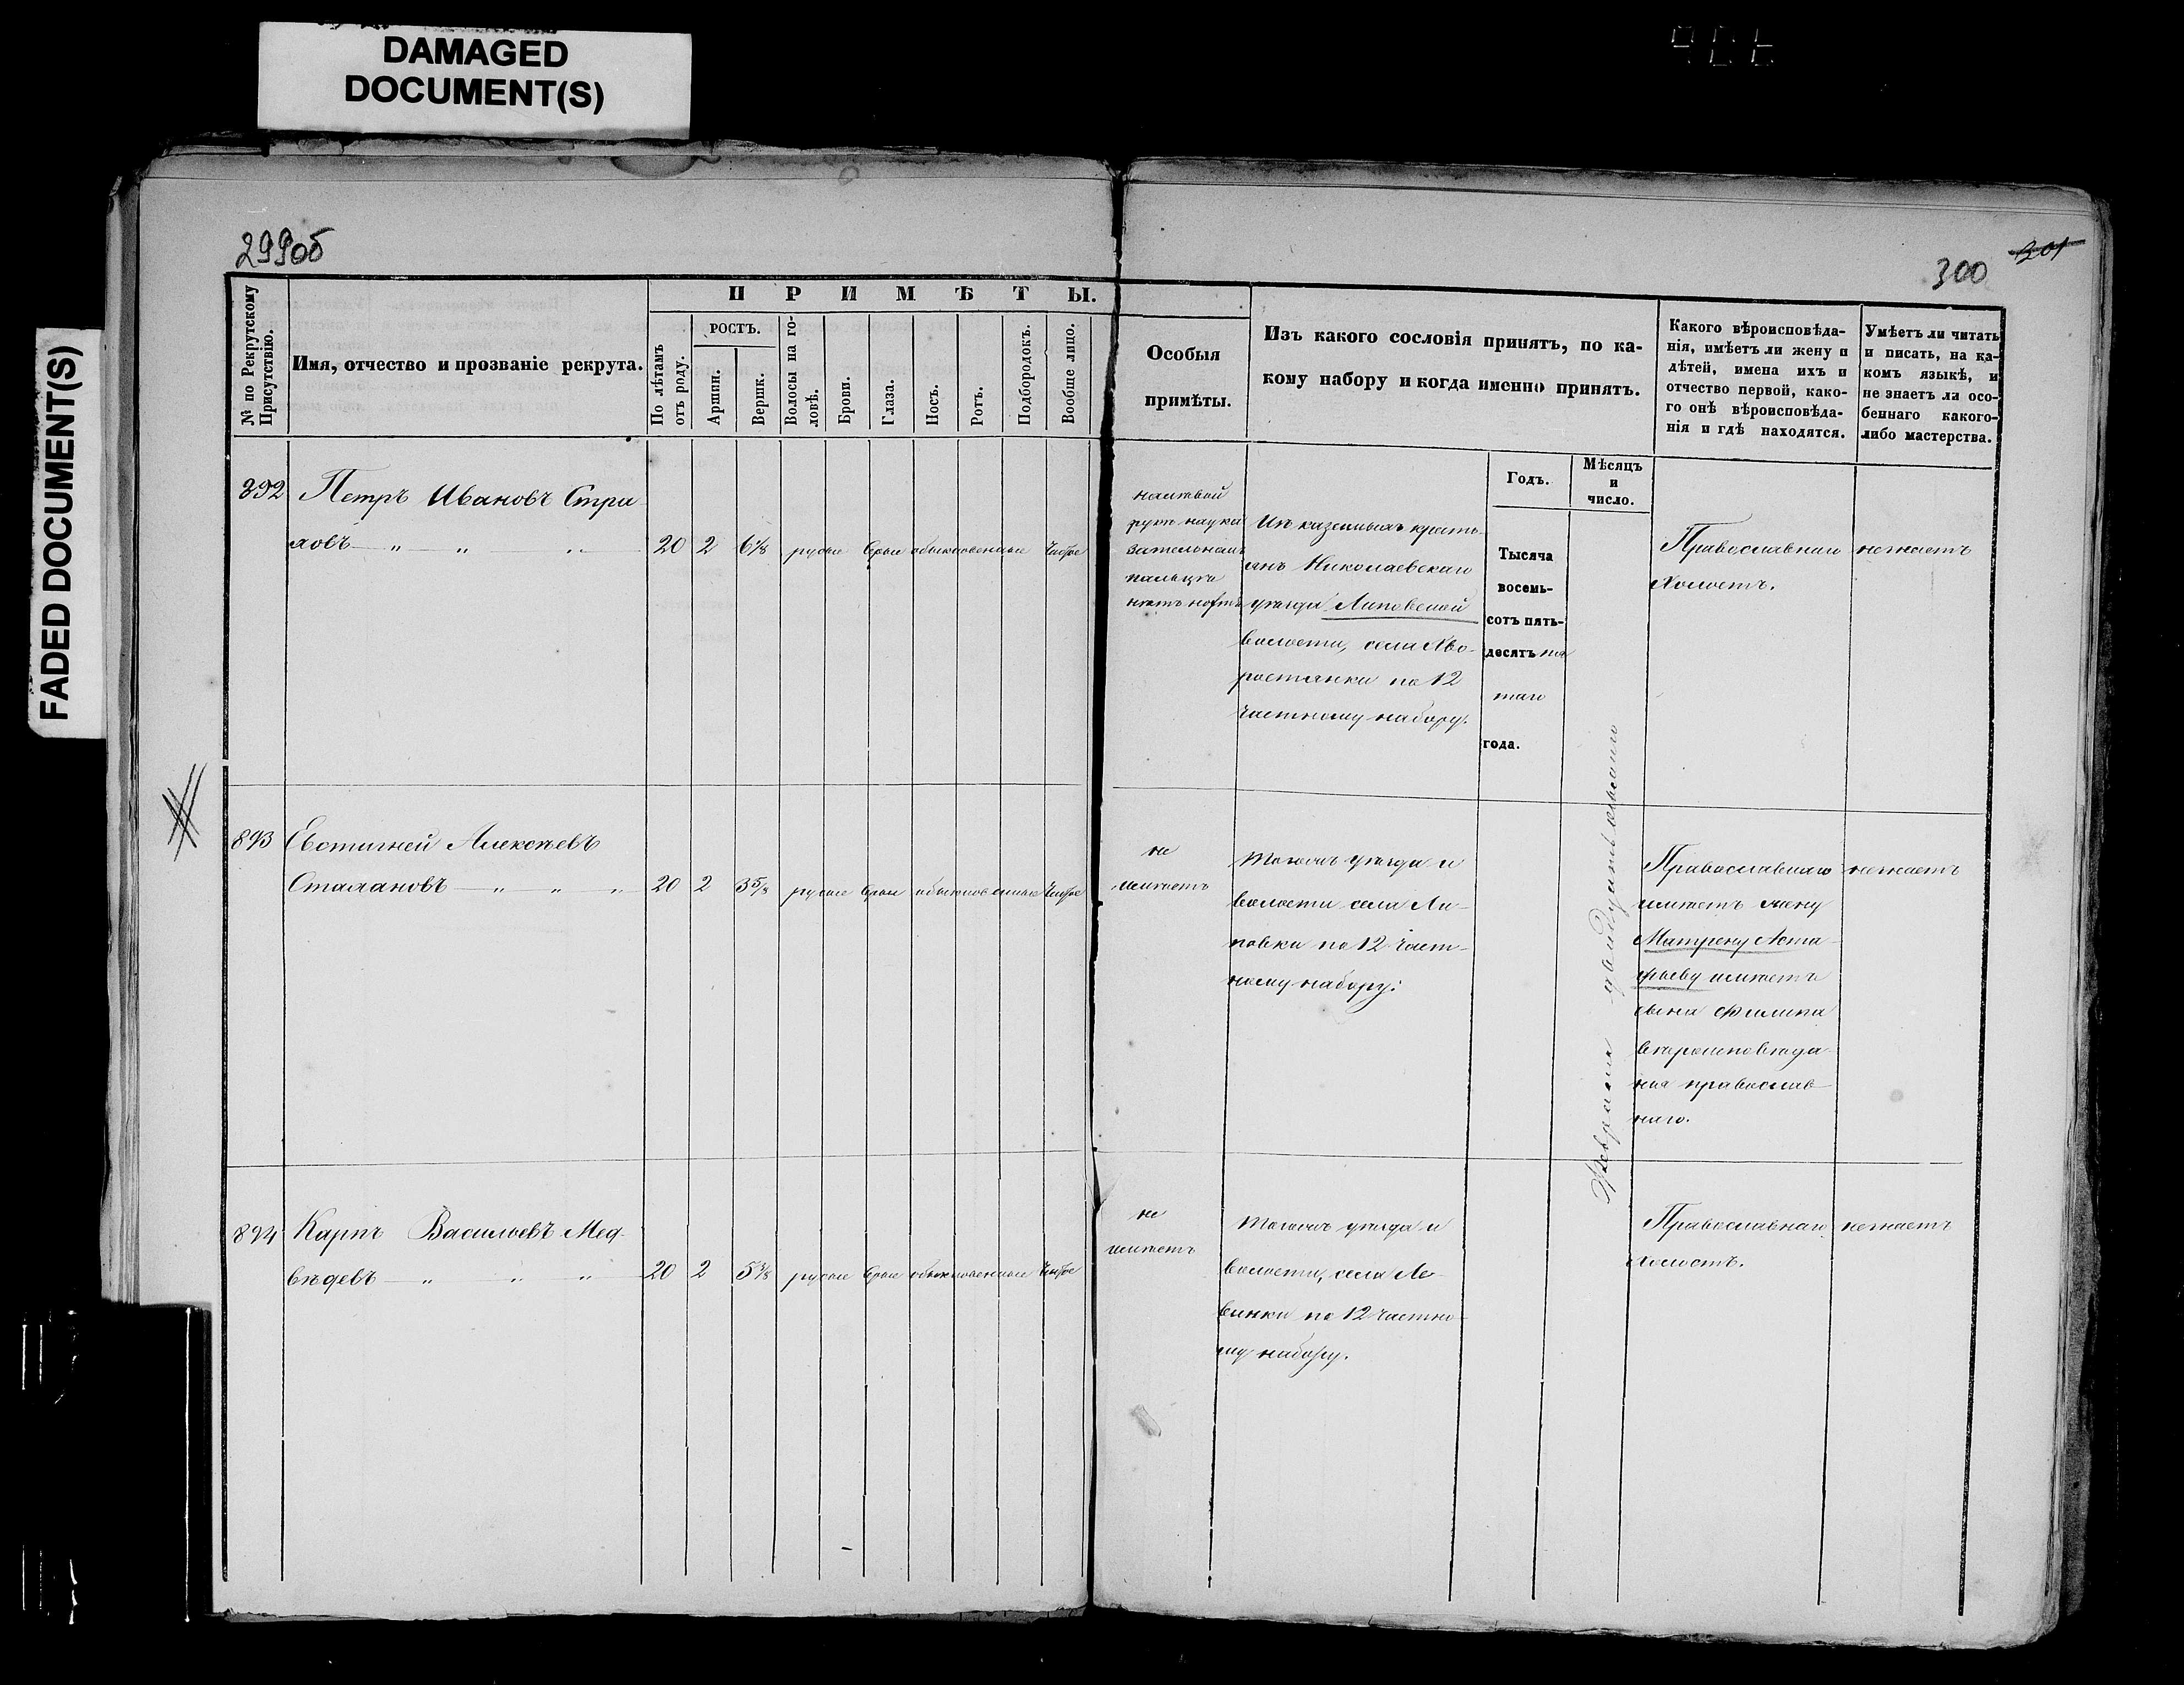 DAMAGED
DOCUMENT(S)
FADED DOCUMENT(S)
299об
300
301
№ по Рекрутскому
Присутствію.
Имя, отчество и прозваніе рекрута.
ПРИМѢТЫ.
По лѣтамъ
отъ роду.
РОСТЪ.
Аршин.
Вершк.
Волосы на го-
ловѣ.
Брови.
Глаза.
Носъ.
Ротъ.
Подбородокъ.
Вообще лицо.
Особыя
примѣты.
Изъ какого сословія принятъ, по ка-
кому набору и когда именно принятъ.
Какого вѣроисповѣда-
нія, имѣетъ ли жену и
дѣтей, имена ихъ и
отчество первой, како-
го онѣ вѣроисповѣда-
нія и гдѣ находятся.
Умѣетъ ли читать
и писать, на ка-
комъ языкѣ, и
не знаетъ ли осо-
беннаго какого-
либо мастерства.
Годъ.
Мѣсяцъ
и
число.
892
Петръ Ивановъ Стра
ховъ — „ — „ „ —
20 2 6 1/8 русые серые обыкновенные чистое
на левой
руке на ука
зательномъ
пальце
нетъ ногтя
Изъ казенныхъ кресть-
янъ Николаевскаго
уезда Липовской
волости, села Хво-
ростянки по 12
частному набору.
Тысяча
восемь-
сотъ пять-
десятъ пя
таго
года.
Февраля двадцать
Православнаго
Холостъ.
незнаетъ
893
Евстигней Алексеевъ
Сталановъ — „ — „ — „
20 2 3 5/8 русые серые обыкновенные чистое
не
имеетъ
Тогожъ уезда и
волости села Ли-
повки по 12 част-
ному набору.
Православнаго
имеетъ жену
Матрену Аста-
фьеву имеетъ
сына Филипа
вероисповеда-
нія православ-
наго.
незнаетъ
894
Карпъ Васильевъ Мед-
ведевъ — „ „ — „ —
20 2 5 3/8 русые серые обыкновенные чистое
не
имеетъ
Тогожъ уезда и
волости, села Ле-
винки по 12 частно-
му набору.
Православнаго
холостъ.
незнаетъ